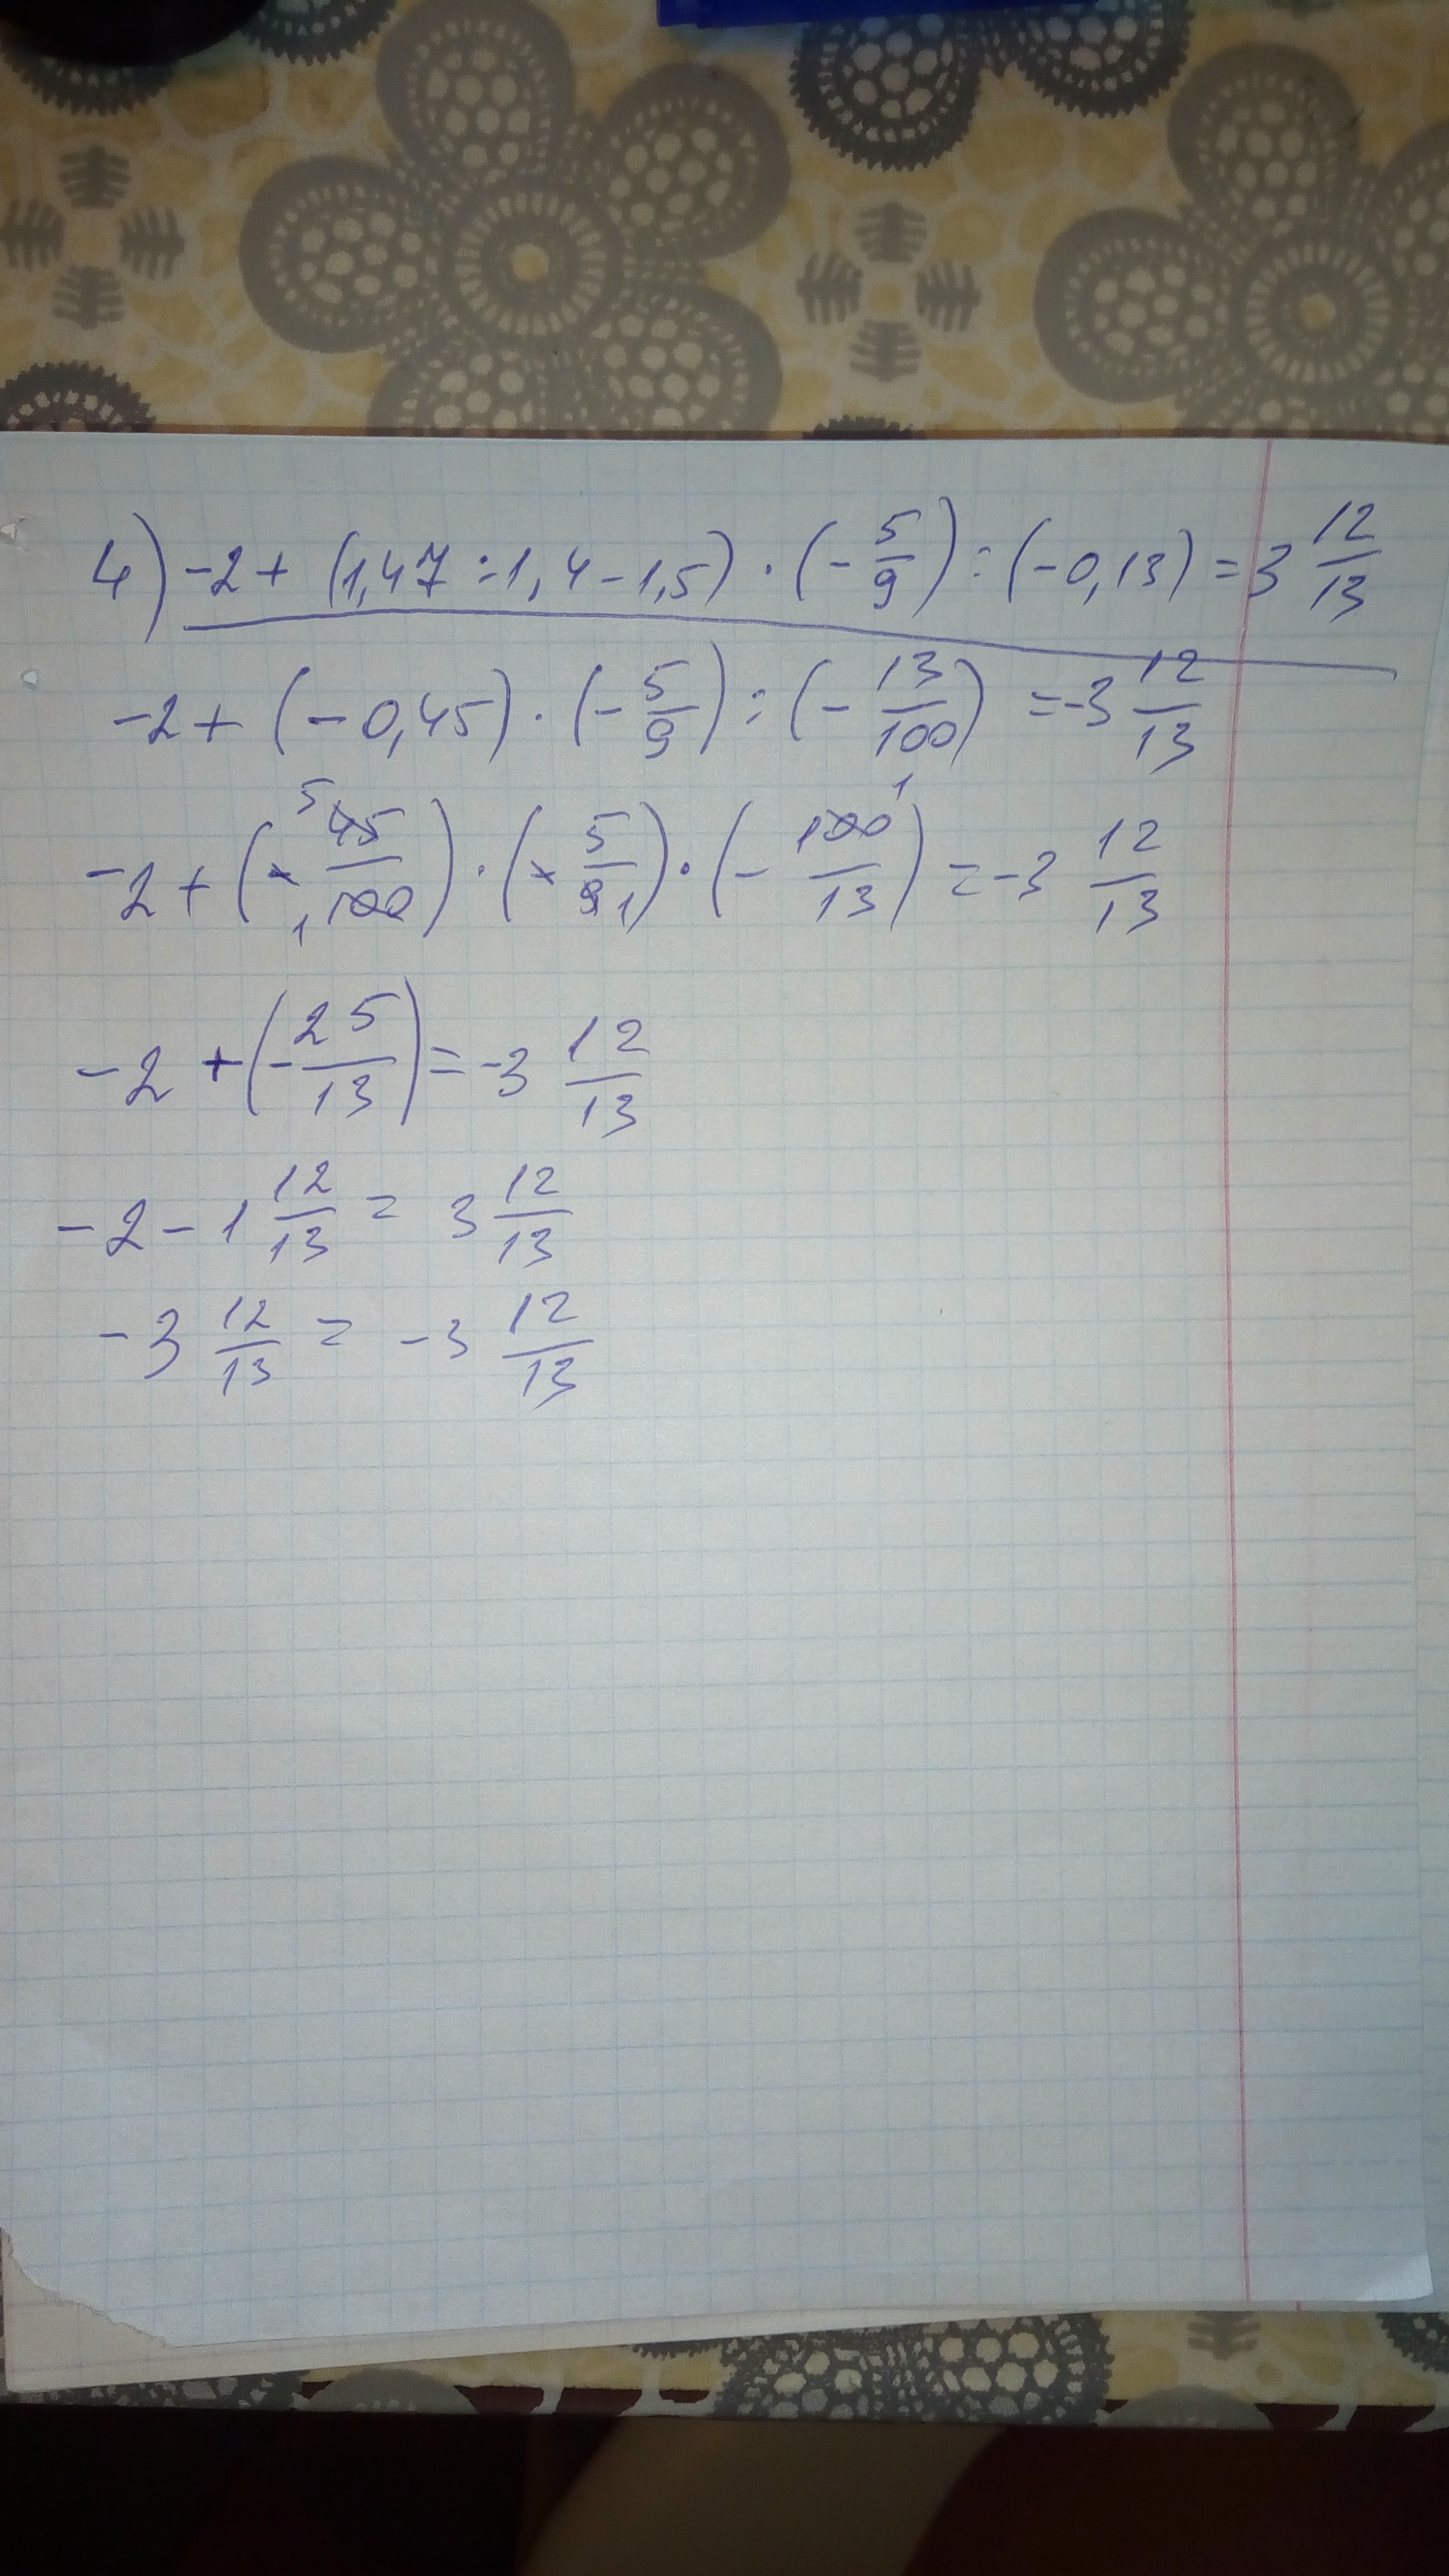 4) -2 + (1,47 : 1,4 - 1,5) · (- 5/9) : (-0,13) = 3 12/13
-2 + (- 0,45) · (- 5/9) : (- 13/100) = -3 12/13
-2 + (- 5 45/1 100) · (- 5/9 1) · (- 100 1/13) = -3 12/13
-2 + (- 25/13) = -3 12/13
-2 - 1 12/13 = 3 12/13
-3 12/13 = -3 12/13